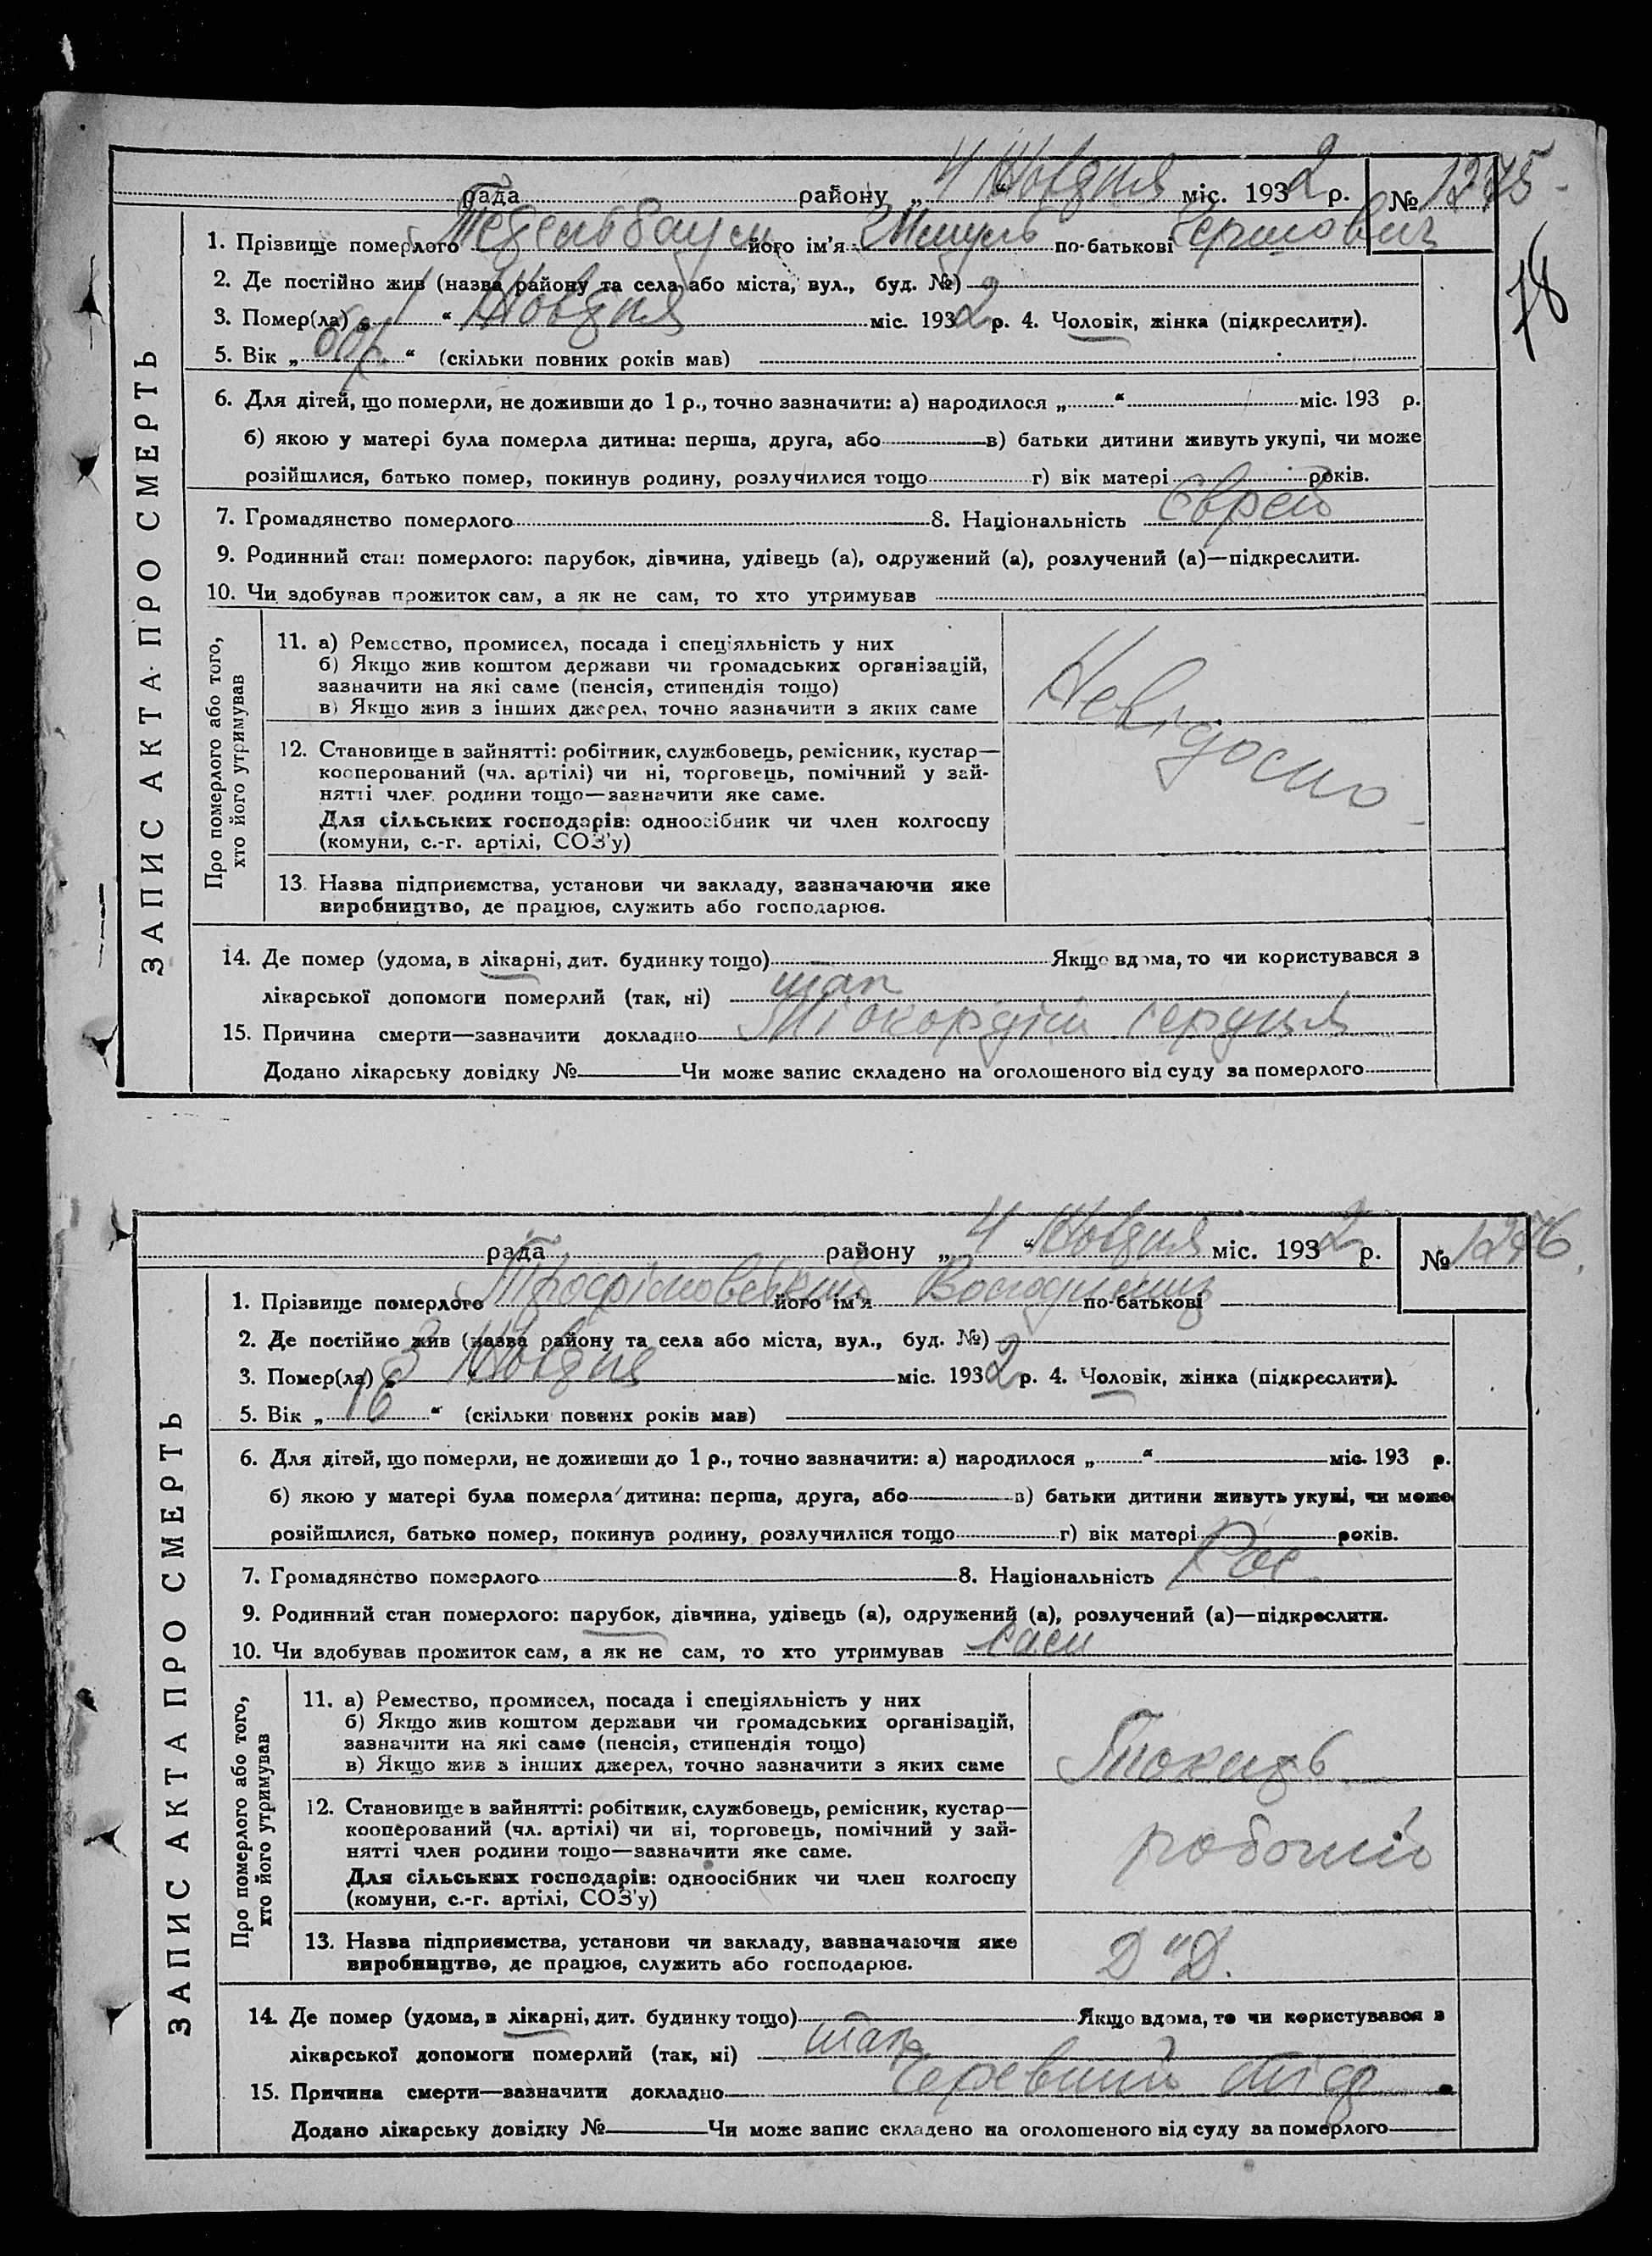 рада району „ 4 “ Жовтня міс. 1932 р. № 1275
78
1. Прізвище померлого його ім'я по-батькові
2. Де постійно жив (назва району та села або міста, вул., буд. №)
3. Помер(ла) „ 1 “ Жовтня міс. 1932 р. 4. Чоловік, жінка (підкреслити).
5. Вік „ 60 р. “ (скільки повних років мав)
6. Для дітей, що померли, не доживши до 1 р., точно зазначити: а) народилося „ “ міс. 193 р.
б) якою у матері була померла дитина: перша, друга, або в) батьки дитини живуть укупі, чи може
розійшлися, батько помер, покинув родину, розлучилися тощо г) вік матері років.
7. Громадянство померлого 8. Національність Єврей
9. Родинний стан померлого: парубок, дівчина, удівець (а), одружений (а), розлучений (а)—підкреслити.
10. Чи здобував прожиток сам, а як не сам, то хто утримував
ЗАПИС АКТА ПРО СМЕРТЬ
Про померлого або того,
хто його утримував
11. а) Ремество, промисел, посада і спеціяльність у них
б) Якщо жив коштом держави чи громадських організацій,
зазначити на які саме (пенсія, стипендія тощо)
в) Якщо жив з інших джерел, точно зазначити з яких саме
Невідомо
12. Становище в зайнятті: робітник, службовець, ремісник, кустар—
кооперований (чл. артілі) чи ні, торговець, помічний у зай-
нятті член родини тощо—зазначити яке саме.
Для сільських господарів: одноосібник чи член колгоспу
(комуни, с.-г. артілі, СОЗ'у)
13. Назва підприємства, установи чи закладу, зазначаючи яке
виробництво, де працює, служить або господарює.
14. Де помер (удома, в лікарні, дит. будинку тощо) Якщо вдома, то чи користувався з
лікарської допомоги померлий (так, ні) так
15. Причина смерти—зазначити докладно Міокардій серця
Додано лікарську довідку № Чи може запис складено на оголошеного від суду за померлого
рада району „ 4 “ Жовтня міс. 1932 р. № 1276
1. Прізвище померлого його ім'я Володимир по-батькові
2. Де постійно жив (назва району та села або міста, вул., буд. №)
3. Помер(ла) „ 3 “ Жовтня міс. 1932 р. 4. Чоловік, жінка (підкреслити).
5. Вік „ 16 “ (скільки повних років мав)
6. Для дітей, що померли, не доживши до 1 р., точно зазначити: а) народилося „ “ міс. 193 р.
б) якою у матері була померла дитина: перша, друга, або в) батьки дитини живуть укупі, чи може
розійшлися, батько помер, покинув родину, розлучилися тощо г) вік матері років.
7. Громадянство померлого 8. Національність Рос.
9. Родинний стан померлого: парубок, дівчина, удівець (а), одружений (а), розлучений (а)—підкреслити.
10. Чи здобував прожиток сам, а як не сам, то хто утримував сам
ЗАПИС АКТА ПРО СМЕРТЬ
Про померлого або того,
хто його утримував
11. а) Ремество, промисел, посада і спеціяльність у них
б) Якщо жив коштом держави чи громадських організацій,
зазначити на які саме (пенсія, стипендія тощо)
в) Якщо жив з інших джерел, точно зазначити з яких саме
Токарь
12. Становище в зайнятті: робітник, службовець, ремісник, кустар—
кооперований (чл. артілі) чи ні, торговець, помічний у зай-
нятті член родини тощо—зазначити яке саме.
Для сільських господарів: одноосібник чи член колгоспу
(комуни, с.-г. артілі, СОЗ'у)
робочий
13. Назва підприємства, установи чи закладу, зазначаючи яке
виробництво, де працює, служить або господарює.
Д"Д.
14. Де помер (удома, в лікарні, дит. будинку тощо) Якщо вдома, то чи користувався з
лікарської допомоги померлий (так, ні) так
15. Причина смерти—зазначити докладно Черевний тіф
Додано лікарську довідку № Чи може запис складено на оголошеного від суду за померлого